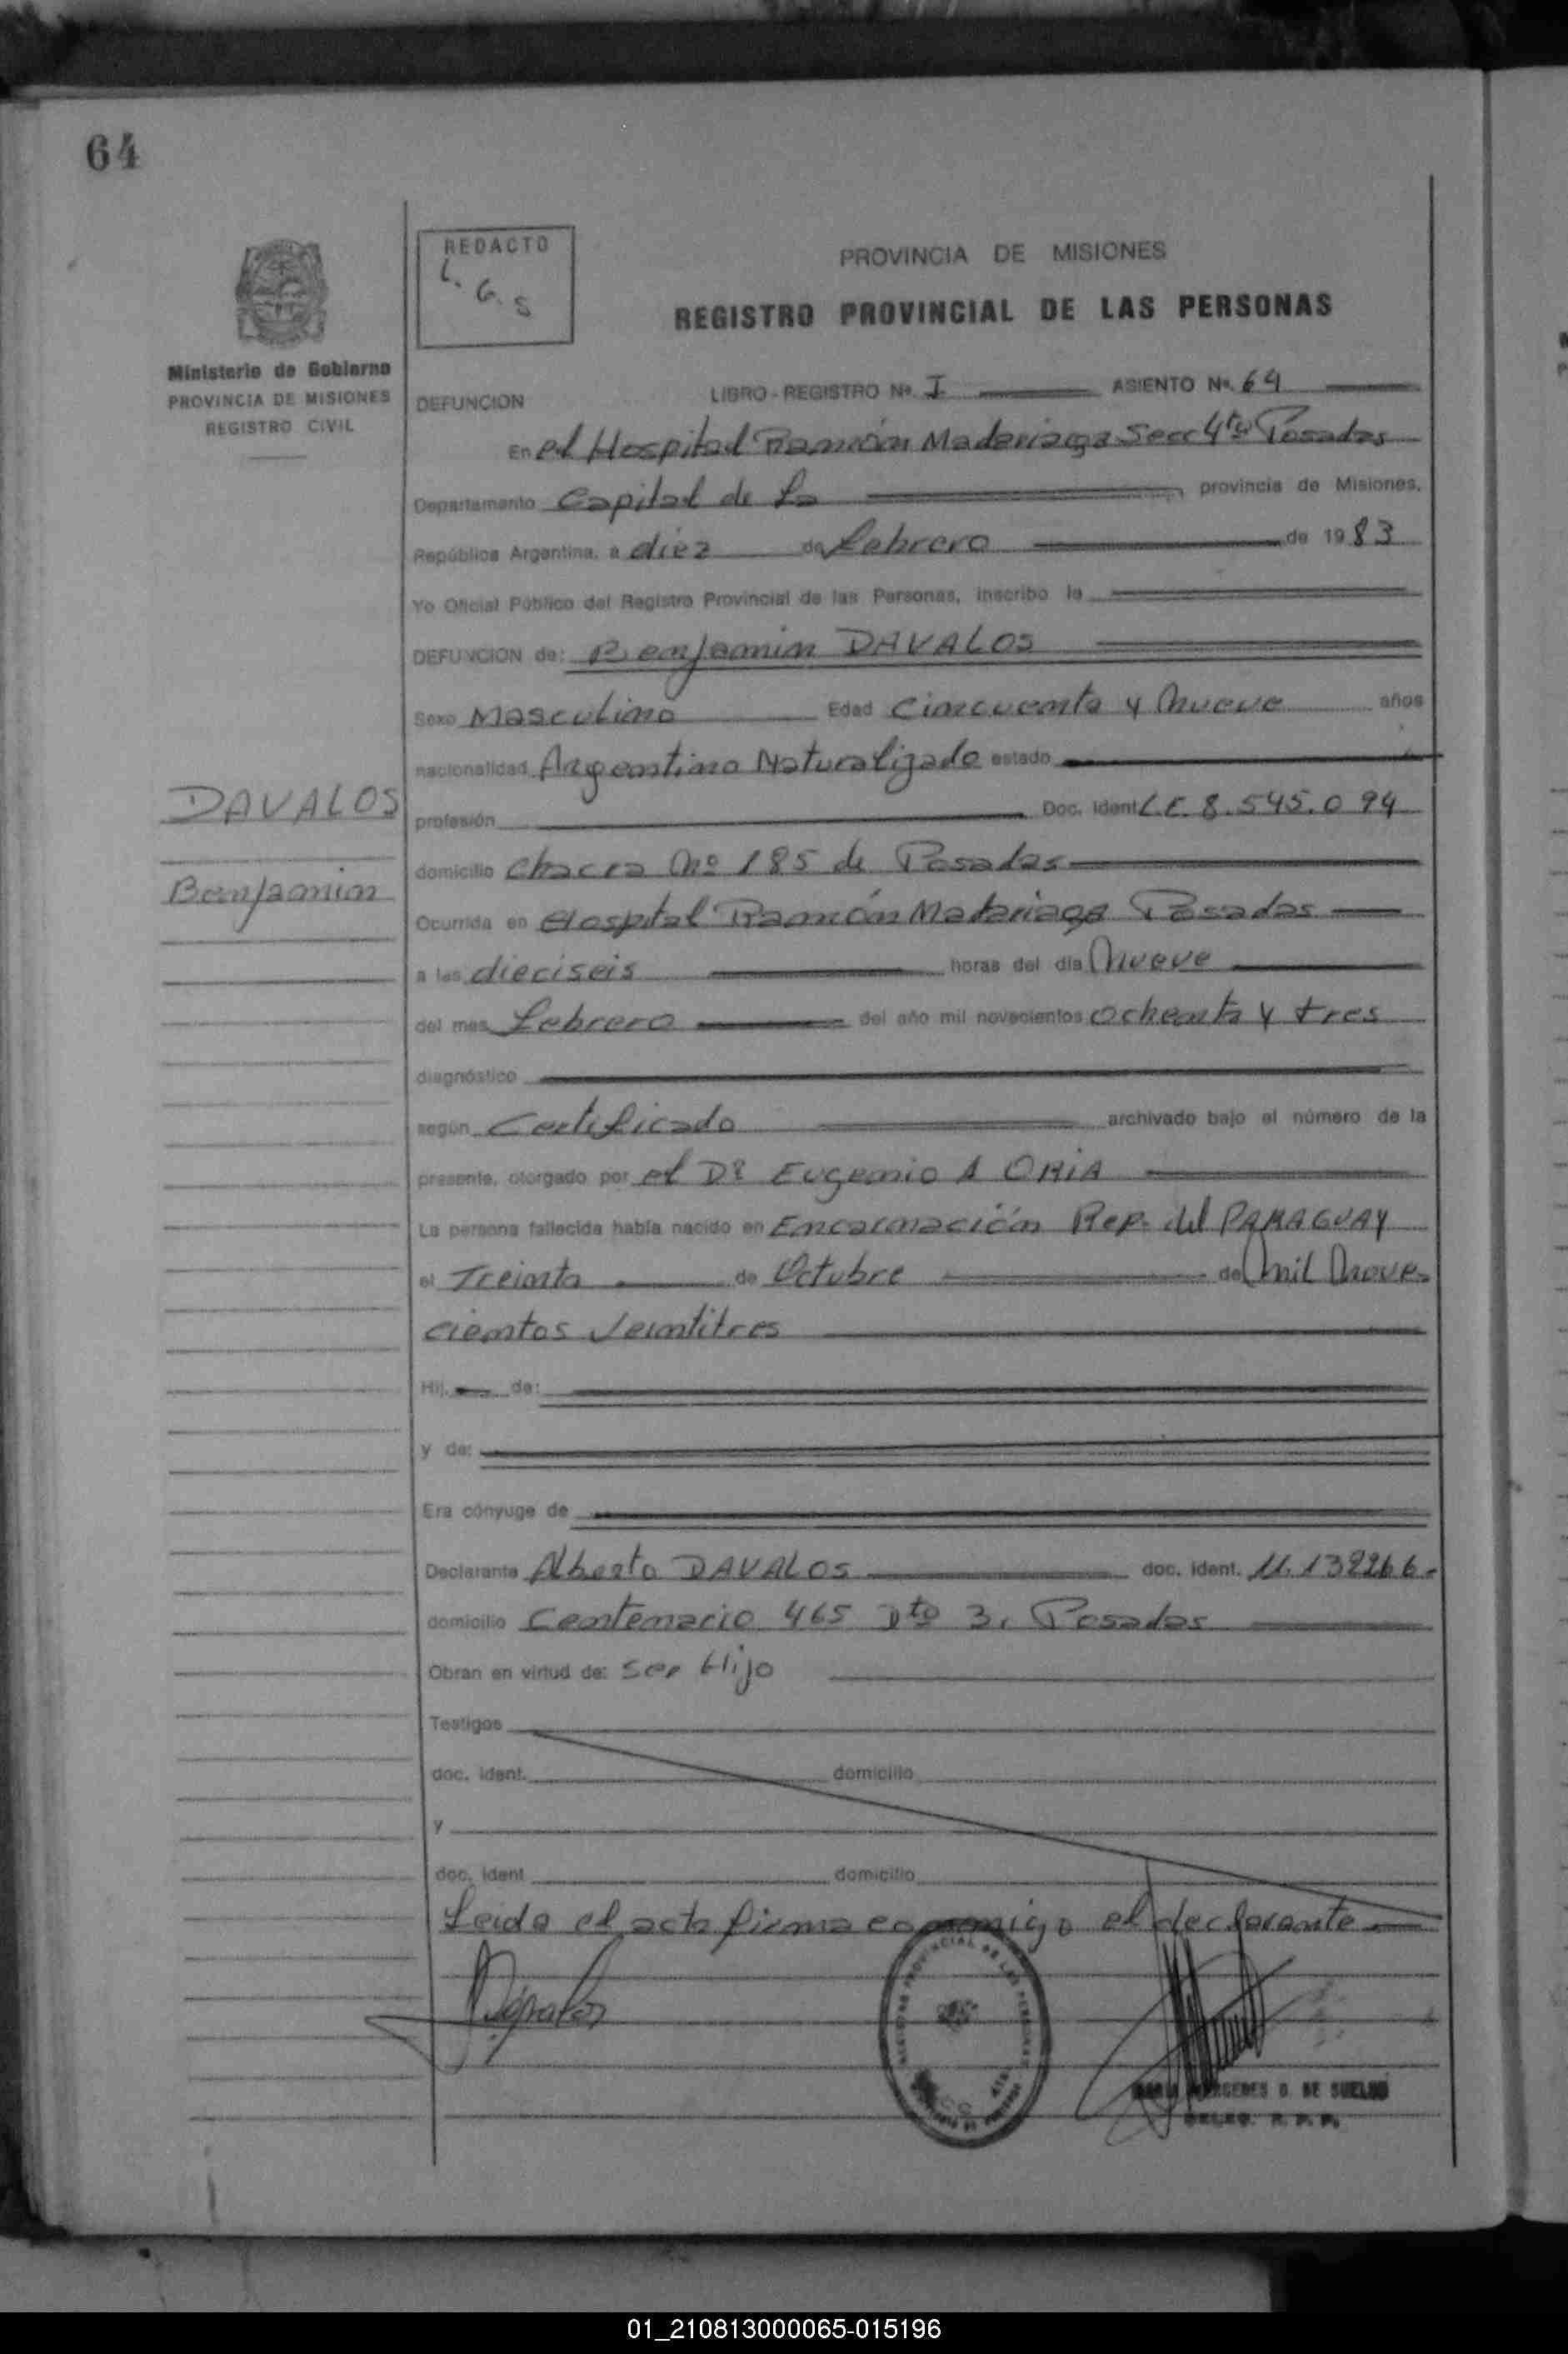 64
REDACTO
L. G. S
PROVINCIA DE MISIONES
REGISTRO PROVINCIAL DE LAS PERSONAS
Ministerio de Gobierno
PROVINCIA DE MISIONES
REGISTRO CIVIL
DEFUNCION LIBRO - REGISTRO Nº. I ASIENTO Nº. 64
En el Hospital Ramón Madariaga Secc 4ta Posadas
Departamento Capital de La provincia de Misiones,
República Argentina, a diez de Febrero de 1983
Yo Oficial Público del Registro Provincial de las Personas, inscribo la
DEFUNCION de: Benjamin DAVALOS
Sexo Masculino Edad Cincuenta y Nueve años
nacionalidad Argentino Naturalizado estado
DAVALOS
profesión Doc. Ident L.E. 8.545.094
domicilio Chacra Nº 185 de Posadas
Benjamin
Ocurrida en Hospital Ramón Madariaga Posadas
a las dieciseis horas del día Nueve
del mes Febrero del año mil novecientos ochenta y tres
diagnóstico
según Certificado archivado bajo el número de la
presente, otorgado por el Dr Eugenio A ORIA
La persona fallecida había nacido en Encarnación Rep. del PARAGUAY
el Treinta de Octubre de Mil Nove-
cientos Veintitres
Hij. de:
y de:
Era cónyuge de
Declarante Alberto DAVALOS doc. ident. 11.132266.-
domicilio Centenario 465 Dto 3, Posadas
Obran en virtud de: Ser Hijo
Testigos
doc. ident. domicilio
y
doc. ident domicilio
Leida el acta firma conmigo el declarante
DE SUELDO
DELEG. R. P. P.
01_210813000065-015196